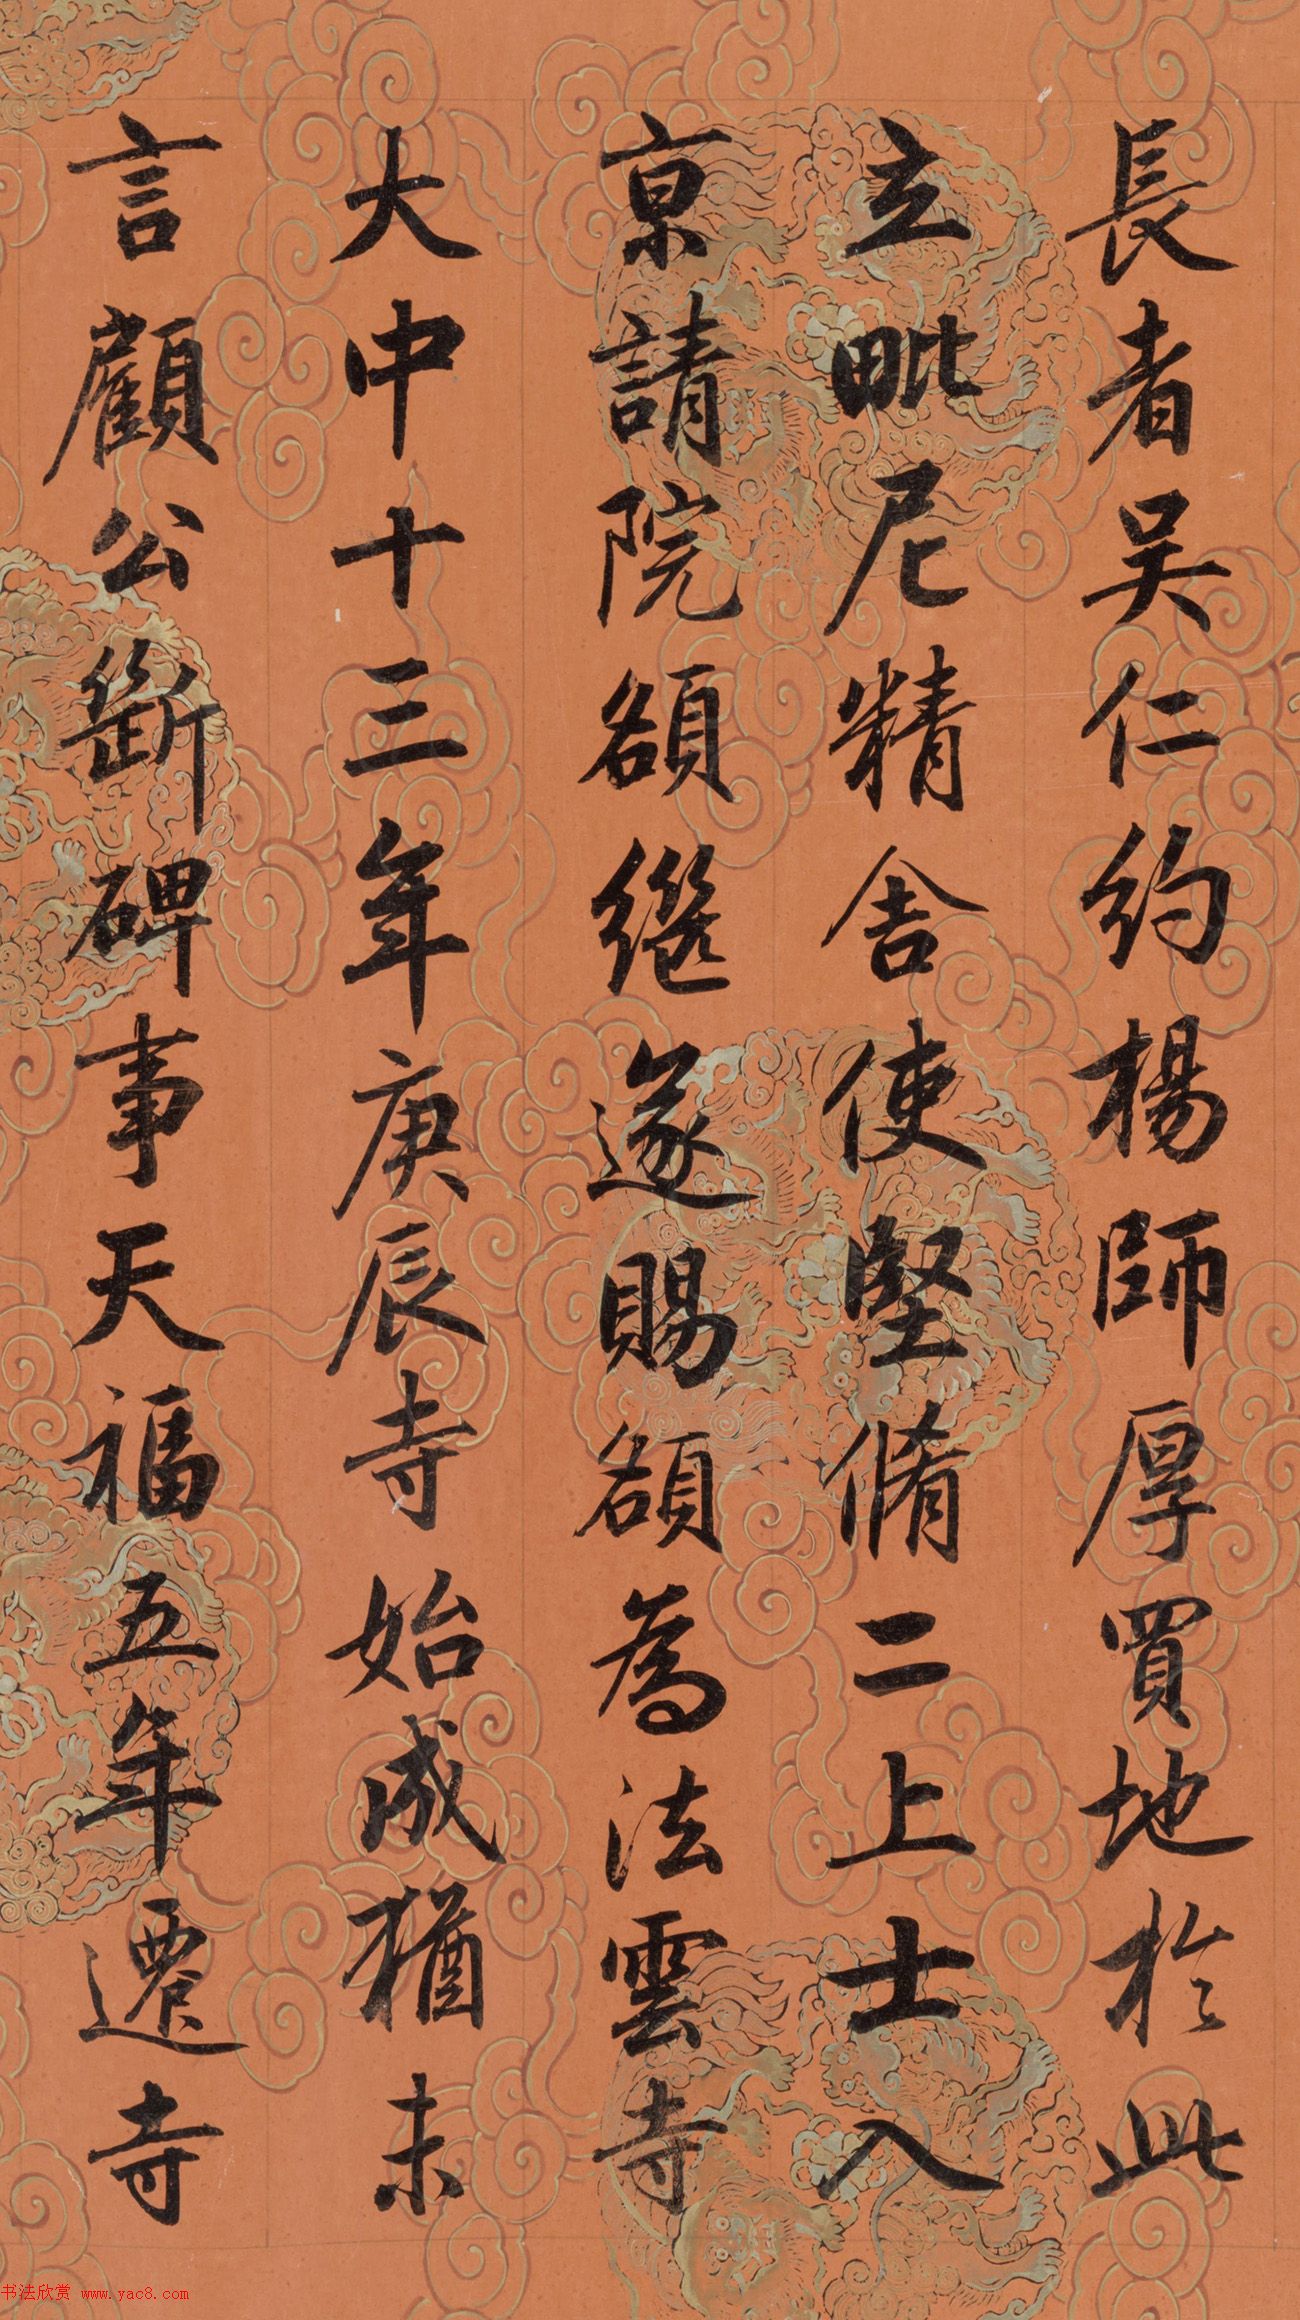 長者吴仁約楊師厚買地於此
立毗尼精舍使堅脩二上士入
京請院額繼遂賜額為法雲寺
大中十三年庚辰寺始成猶未
言顧公斷碑事天福五年遷寺
书法欣赏 www.yac8.com